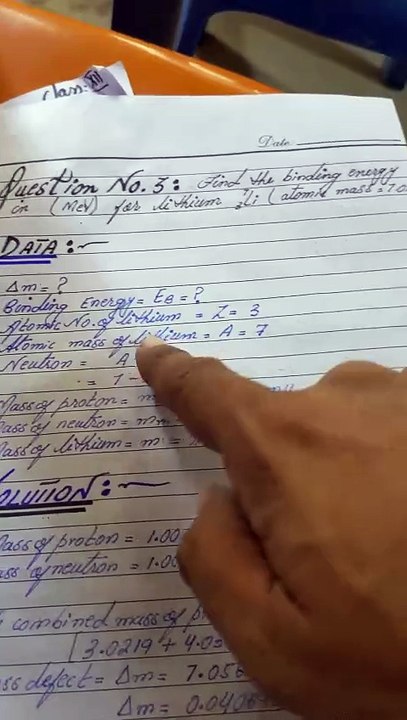 class XII
Date
Question No. 3: Find the binding energy
in (MeV) for lithium ⁷₃Li (atomic mass = 7.0
DATA:-
Δm = ?
Binding Energy = EB = ?
Atomic No. of lithium = Z = 3
Atomic mass of lithium = A = 7
Neutron = A
= 7 -
Mass of proton = m
Mass of neutron = m
Mass of lithium = m =
SOLUTION:-
Mass of proton = 1.00
Mass of neutron = 1.00
combined mass of p
3.0219 + 4.03
Mass defect = Δm = 7.056
Δm = 0.040